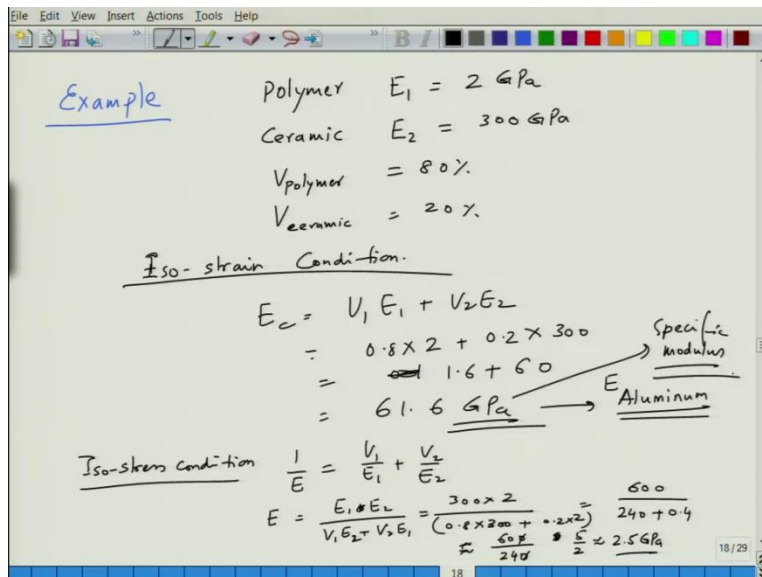 File Edit View Insert Actions Tools Help
B I
Example
Polymer E₁ = 2 GPa
Ceramic E₂ = 300 GPa
Vpolymer = 80%
Vceramic = 20%
Iso-strain Condition.
E_c = V₁ E₁ + V₂ E₂
= 0.8 × 2 + 0.2 × 300
= 1.6 + 60
= 61.6 GPa
Specific modulus
E Aluminum
Iso-stress condition 1/E = V₁/E₁ + V₂/E₂
E = E₁ E₂ / V₁E₂ + V₂E₁ = 300 × 2 / (0.8 × 300 + 0.2 × 2) = 600 / 240 + 0.4
≈ 600 / 240 5/2 ≈ 2.5 GPa
18/29
18